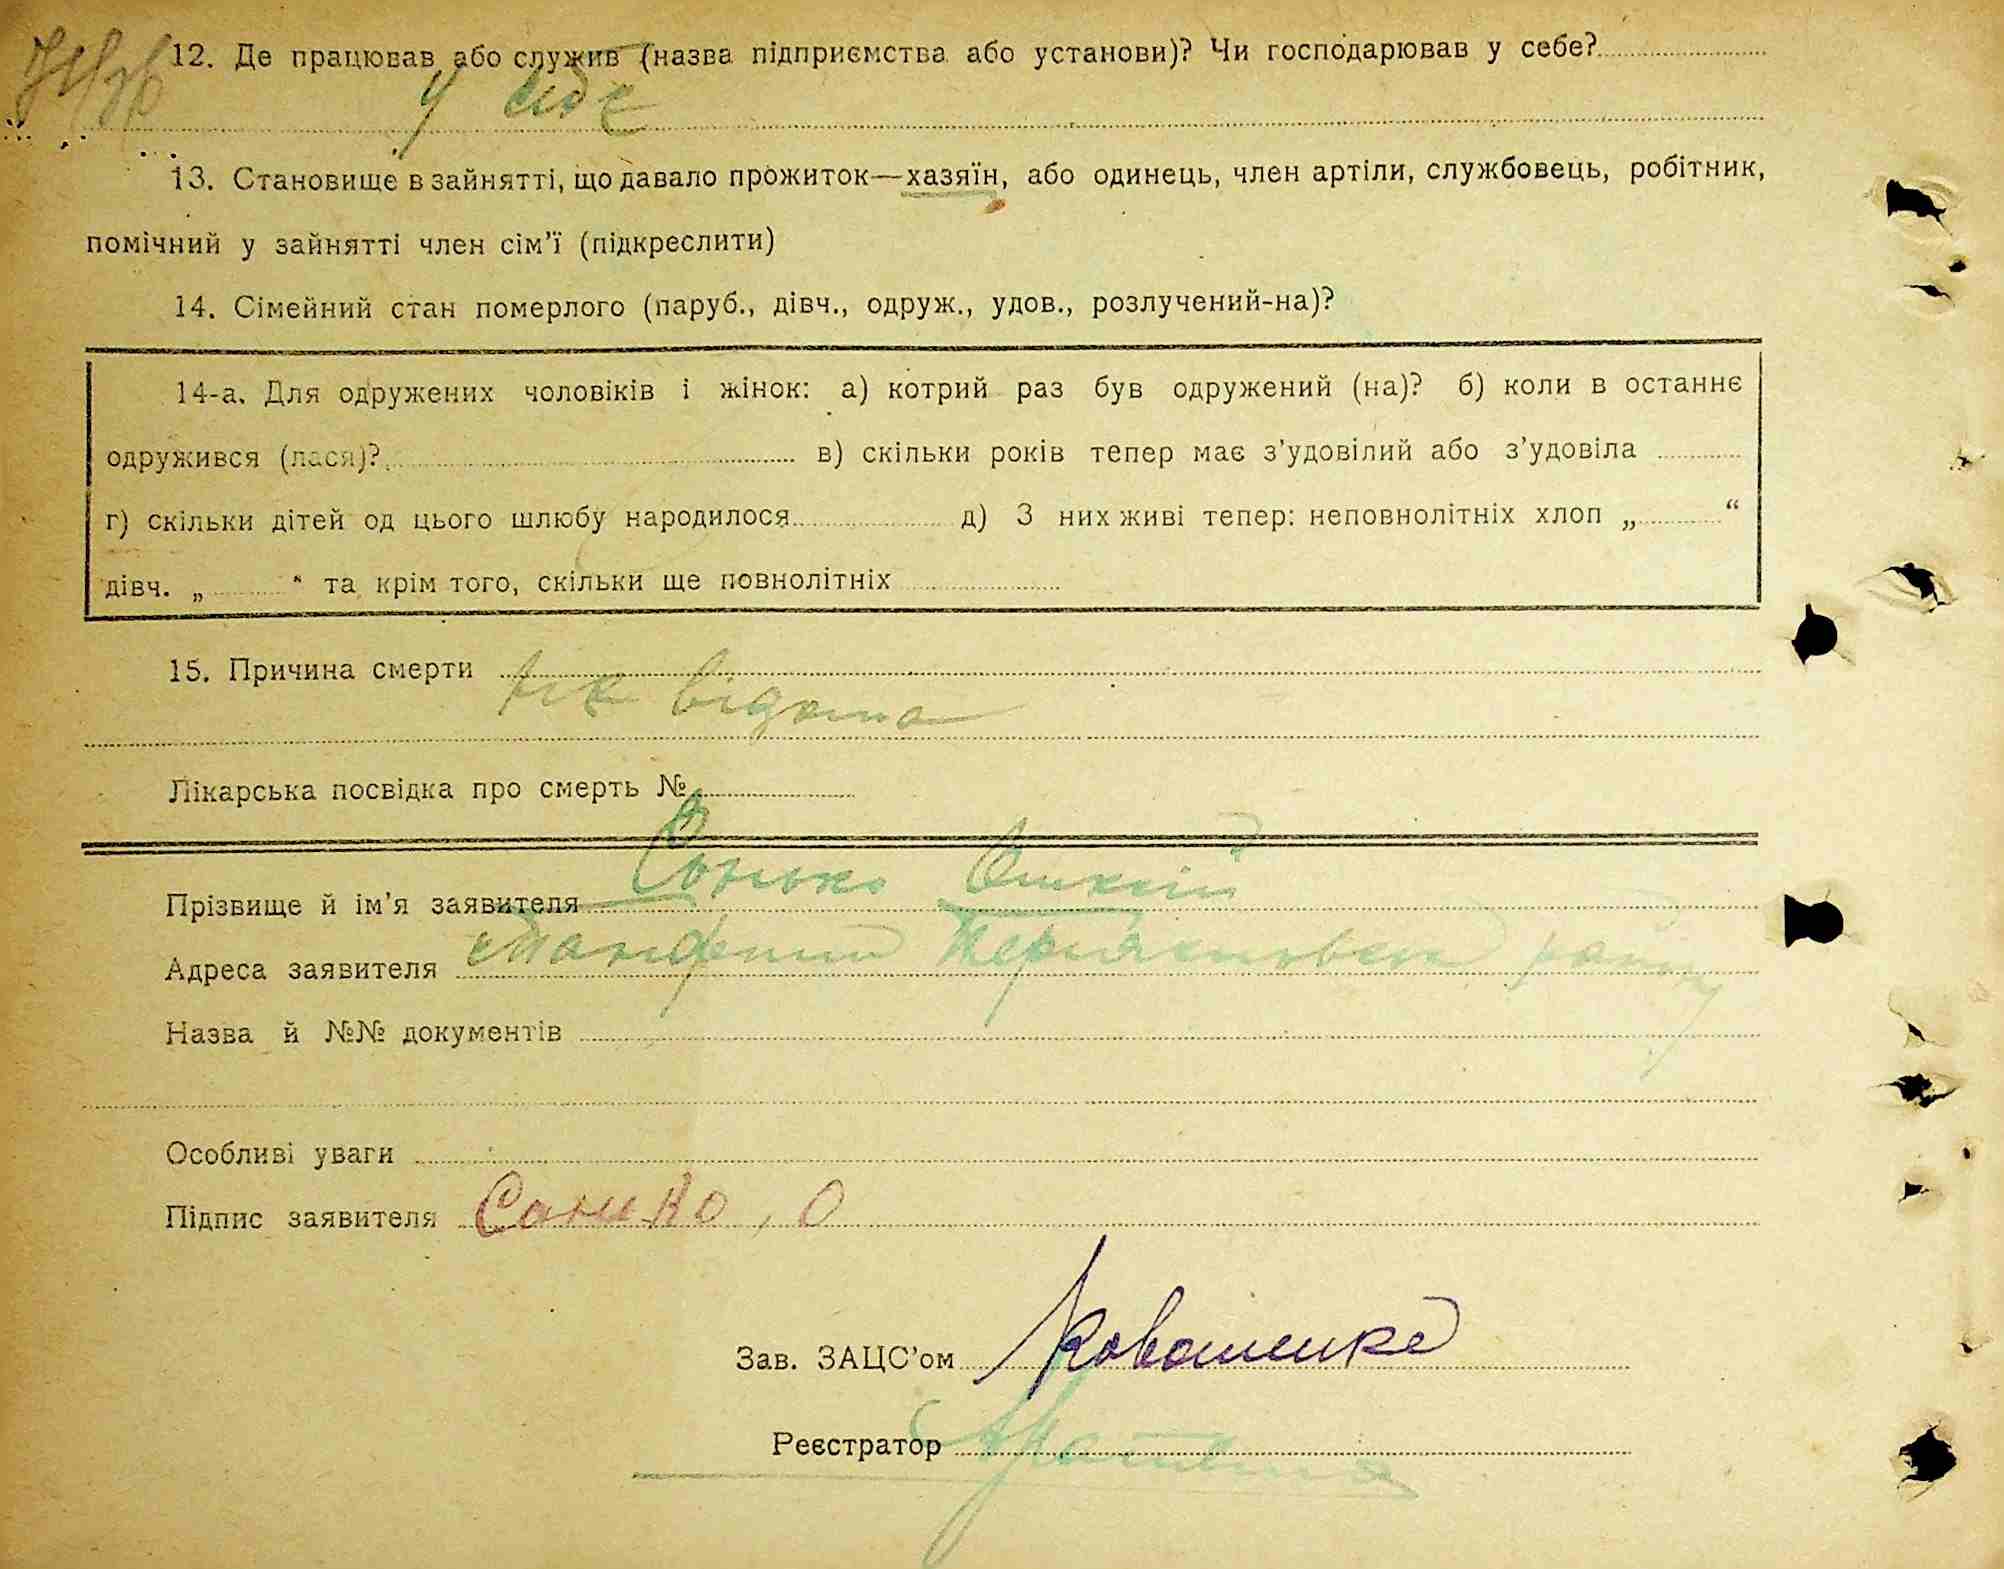 12. Де працював або служив (назва підприємства або установи)? Чи господарював у себе?
У себе
13. Становище в зайнятті, що давало прожиток—хазяїн, або одинець, член артіли, службовець, робітник,
помічний у зайнятті член сім'ї (підкреслити)
14. Сімейний стан померлого (паруб., дівч., одруж., удов., розлучений-на)?
14-а. Для одружених чоловіків і жінок: а) котрий раз був одружений (на)? б) коли в останнє
одружився (лася)? в) скільки років тепер має з'удовілий або з'удовіла
г) скільки дітей од цього шлюбу народилося д) З них живі тепер: неповнолітніх хлоп „ “
дівч. „ “ та крім того, скільки ще повнолітніх
15. Причина смерти
не відома
Лікарська посвідка про смерть №
Прізвище й ім'я заявителя Сонько
Адреса заявителя району
Назва й №№ документів
Особливі уваги
Підпис заявителя Сонько, О
Зав. ЗАЦС'ом Коваленко
Реєстратор